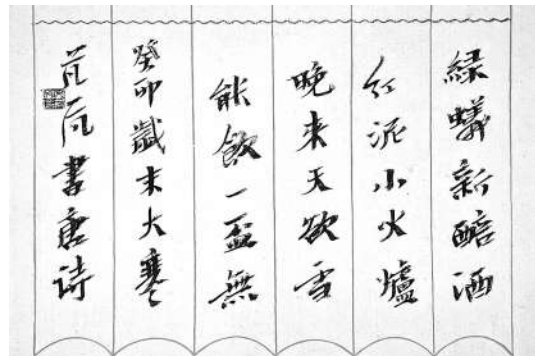 緑蟻新醅酒
紅泥小火爐
晚来天欲雪
能飲一盃無
癸卯歲末大寒
書唐诗